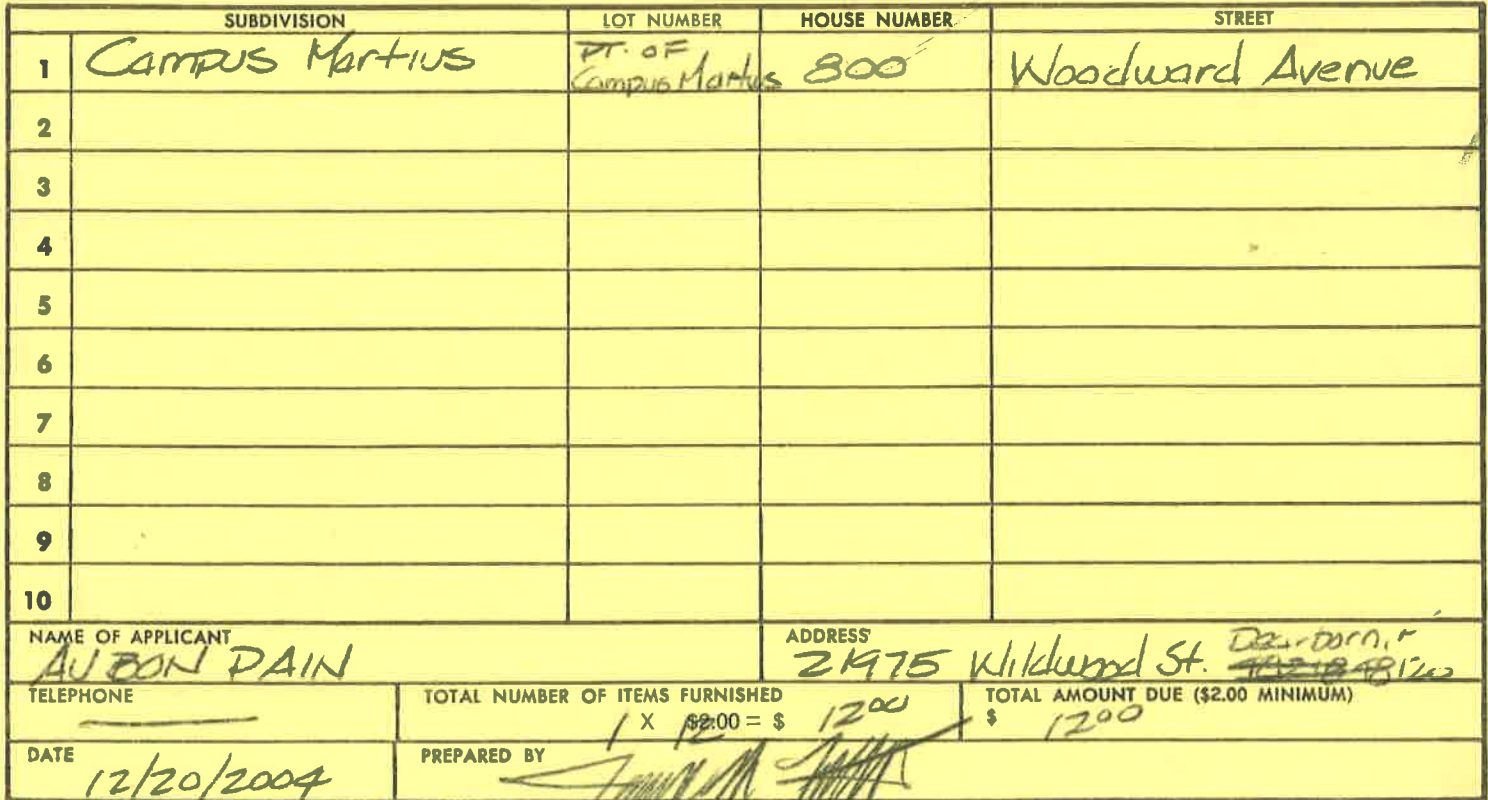 SUBDIVISION LOT NUMBER HOUSE NUMBER STREET
1 Campus Martius PT. OF Campus Martius 800 Woodward Avenue
2
3
4
5
6
7
8
9
10
NAME OF APPLICANT ADDRESS
AU BON PAIN 21975 Wildwood St. Dearborn,
TELEPHONE TOTAL NUMBER OF ITEMS FURNISHED TOTAL AMOUNT DUE ($2.00 MINIMUM)
— 1 X $2.00 = $ 12 00 $ 12 00
DATE PREPARED BY
12/20/2004